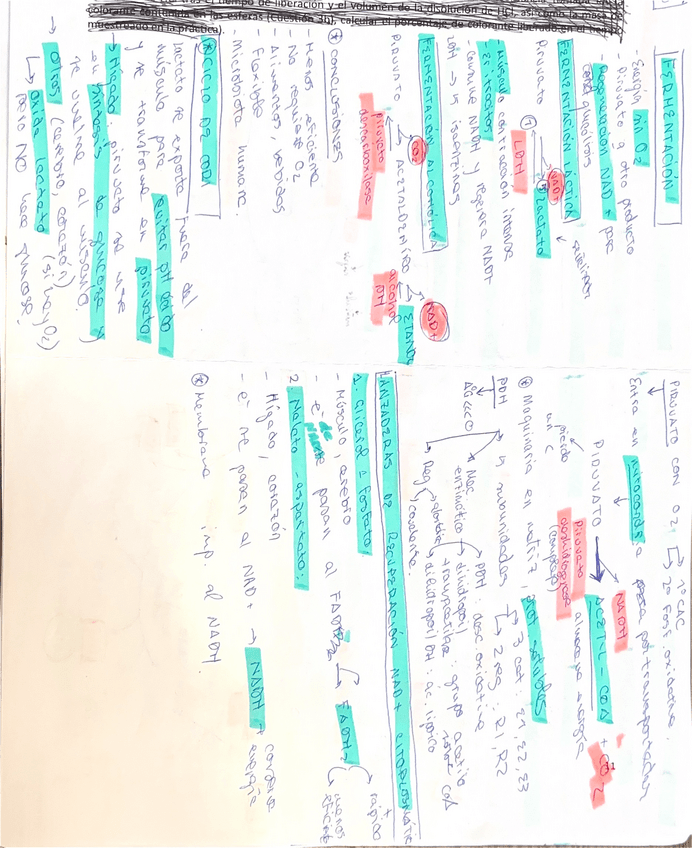 colorante contenida en las esferas (Cuestión 3b), calcular el porcentaje de colorante liberado en el
muestreado en la práctica).
FERMENTACIÓN
- Energía sin O2
- Piruvato a otro producto
- Regeneración NAD+ para
glucólisis
FERMENTACIÓN LÁCTICA
NAD+
Piruvato → Lactato
LDH
- Músculo contracción intensa
- Eritrocitos
- Consume NADH y regenera NAD+
LDH → 4 isoenzimas
FERMENTACIÓN ALCOHÓLICA
CO2
NAD+
PIRUVATO → ACETALDEHÍDO → ETANOL
piruvato
descarboxilasa
alcohol
DH
* CONCLUSIONES
- Menos eficiente
- No requiere O2
- Alimentos, bebidas
- Flexible
- Microbiota humana.
* CICLO DE CORI
Lactato se exporta fuera del
músculo para evitar pH ácido
y se transforma en piruvato
→ Hígado: piruvato se usa
en síntesis de glucosa y
se vuelve al músculo.
→ Otros (cerebro, corazón)
↳ Oxida lactato (si hay O2)
pero NO hace glucosa.
PIRUVATO CON O2
1º CAC
2º Fosf. oxidativa
Entra en mitocondria por transportador
NADH
PIRUVATO → ACETIL-COA + CO2
piruvato
deshidrogenasa
(complejo)
pierde
un C
almacena energía
* Maquinaria en matriz,
PDH
4 subunidades
3 cat: E1, E2, E3
2 reg: R1, R2
Nec.
enzimático
PDH: desc. oxidativa
transacetilasa: grupo acetilo
sobre CoA
dihidrolipoil DH: ac. lipoico
Reg
covalente.
LANZADERAS DE RECUPERACIÓN NAD+ CITOPLASMÁTICO
1. Glicerol 3 Fosfato:
- Músculo, cerebro
- e- pasan al FAD → FADH2
+ rápido
menos
eficiente
2. Malato-aspartato:
- Hígado, corazón
- e- se pasan al NAD+ → NADH + conserva
energía
* Membrana imp. al NADH.